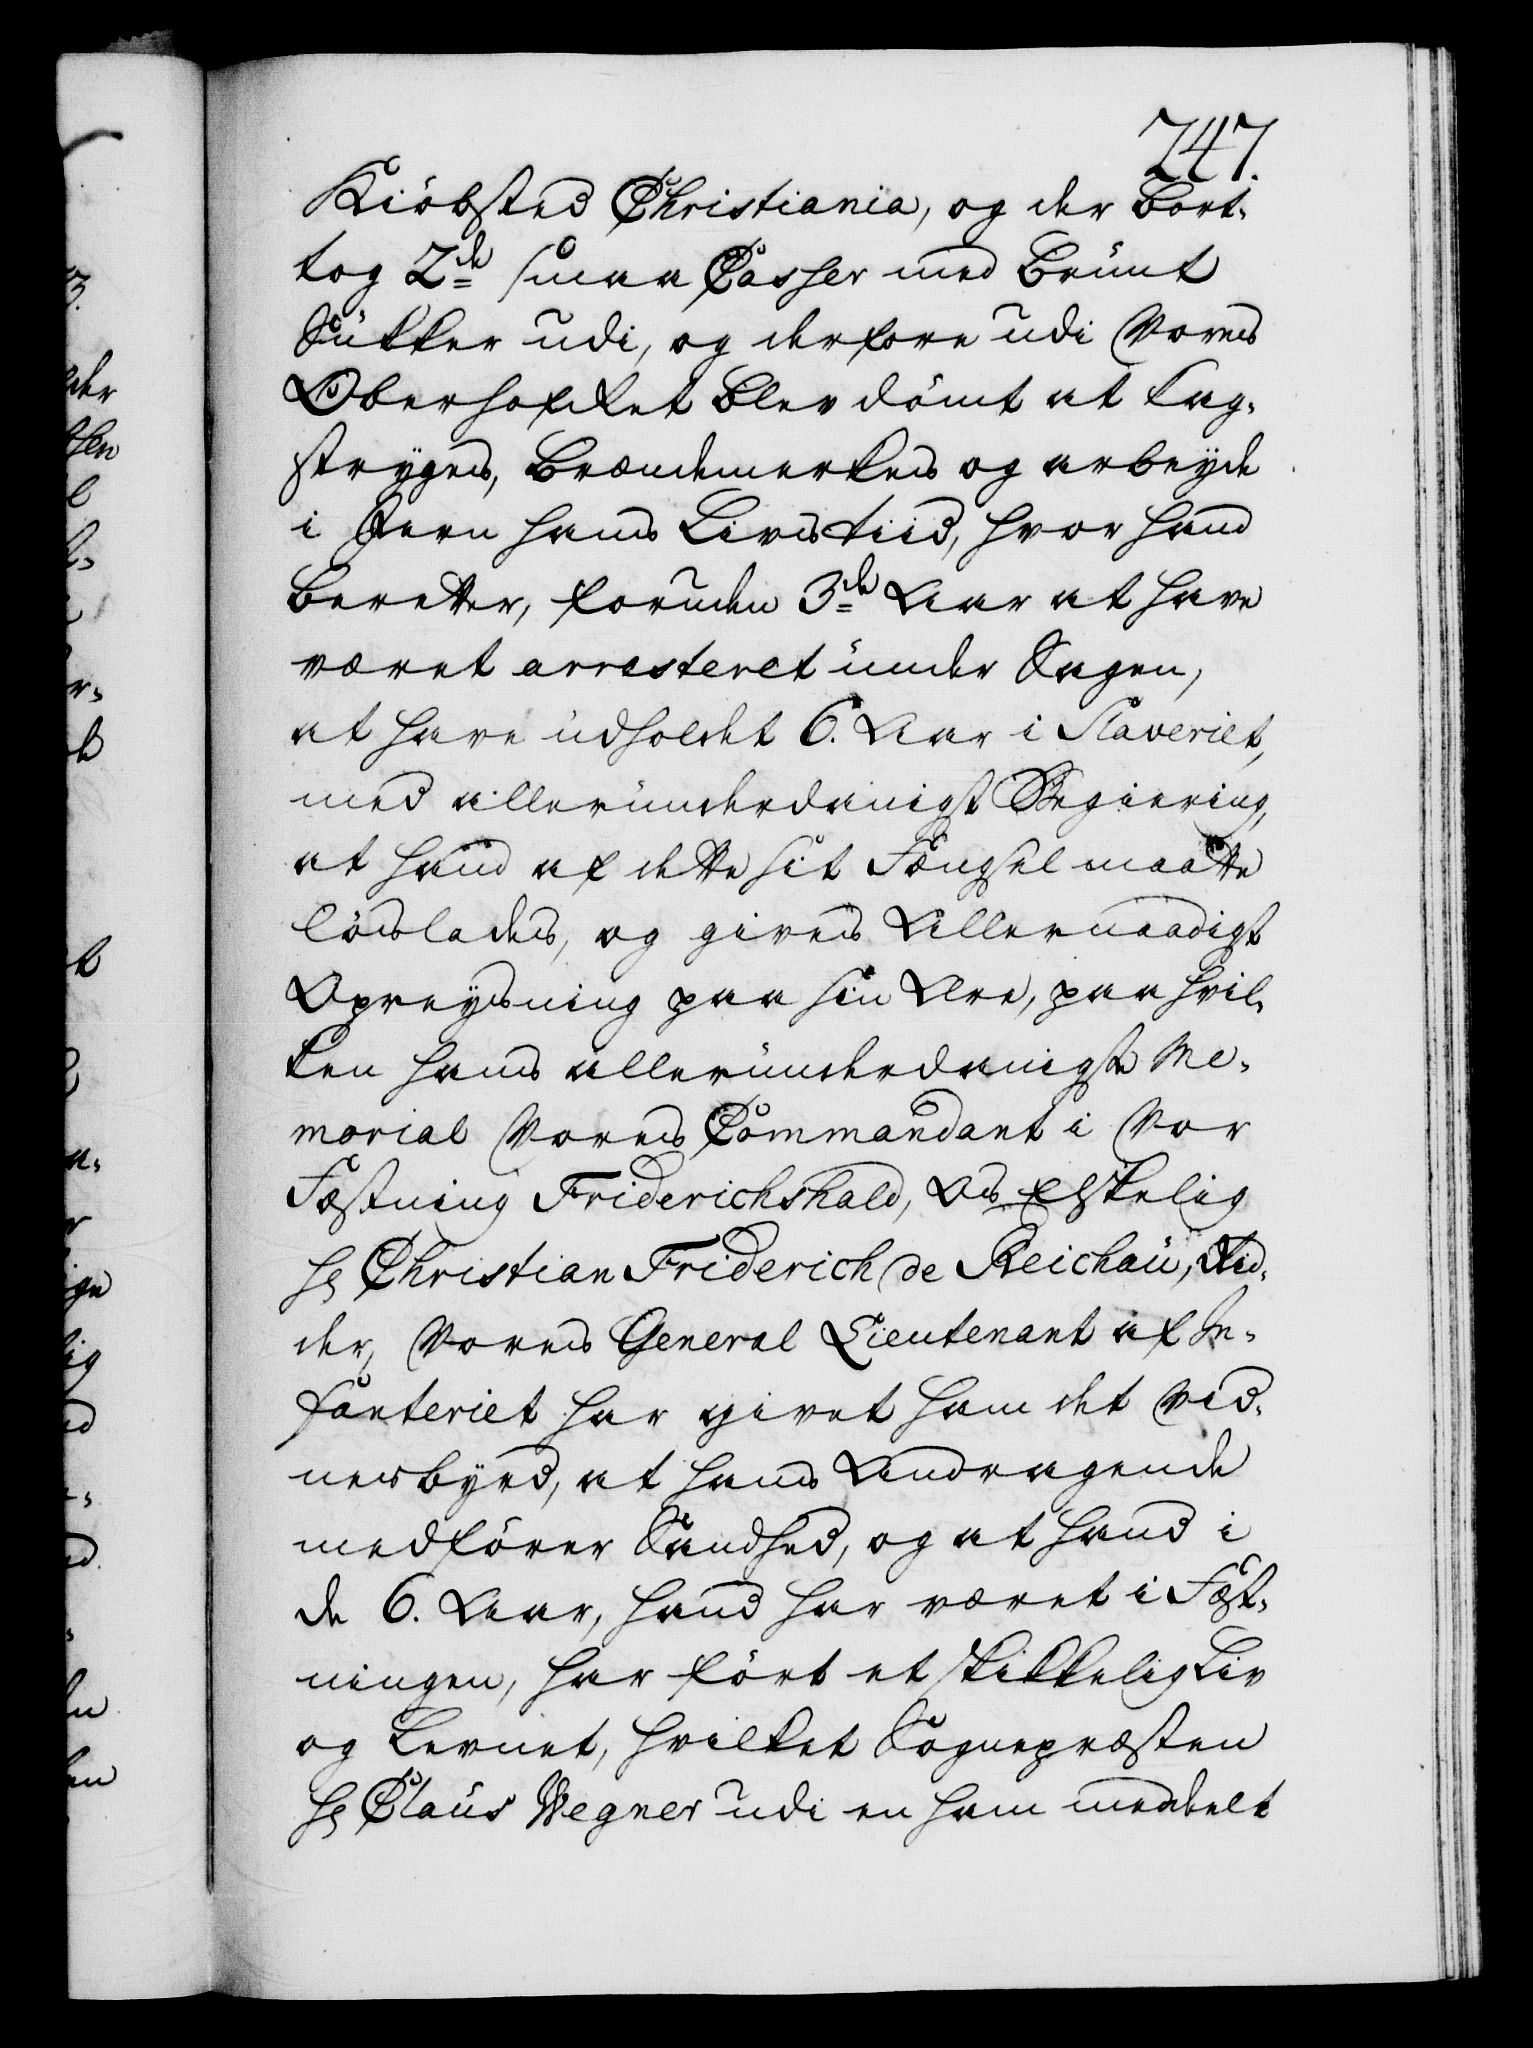 747.
Kiøbsted Christiania, og der bort-
tog 2de smaa Casser med brünt
Sükker udi, og derfore udi Vores
Oberhofret blev dömt at Kag-
stryges, brændemerkes og arbeyde
i Jern hans Livs tiid, hvor hand
beretter, foruden 3de Aar at have
været arresteret ünder Sagen,
at have üdholdet 6. Aar i Slaveriet,
med alleründerdanigst Begiering,
at hand af dette sit Fængsel maatte
lösslades, og gives Allernaadigst
Opreysning paa sin Ære, paa hvil-
ken hans alleründerdanigste Me-
morial Vores Commandant i Vor
Fæstning Friderichshald, Os Elskelig
Hr Christian Friderich de Reichaü, Rid-
der, Vores General Lieutenant af In-
fanteriet har givet ham det Vid-
nesbyrd, at hans Andragende
medförer Sandhed, og at hand i
de 6. Aar, hand har været i Fæst-
ningen, har fört et skikkelig Liv
og Levnet, hvilket Sognepræsten
Hr Claüs Wegner udi en ham meddelt